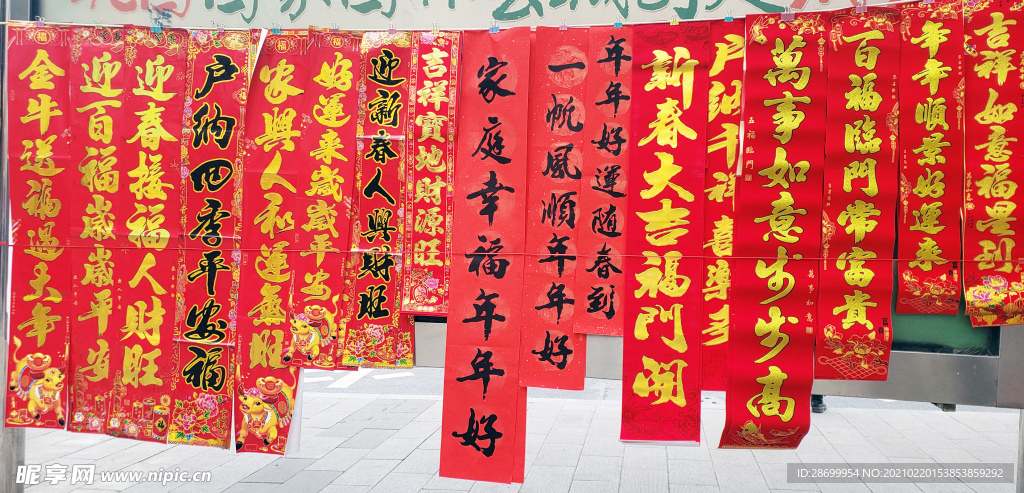 金牛送福过大年
迎百福岁岁平安
迎春接福人财旺
户纳四季平安福
家興人和運盛旺
好運来歲歲平安
迎新春人興財旺
吉祥寶地財源旺
家庭幸福年年好
一帆風順年年好
年年好運随春到
新春大吉福門開
萬事如意步步高
五福臨門
萬事如意
百福臨門常富貴
年年順景好運来
吉祥如意福星到
昵享网 www.nipic.cn
ID:28699954 NO:20210220153853859292